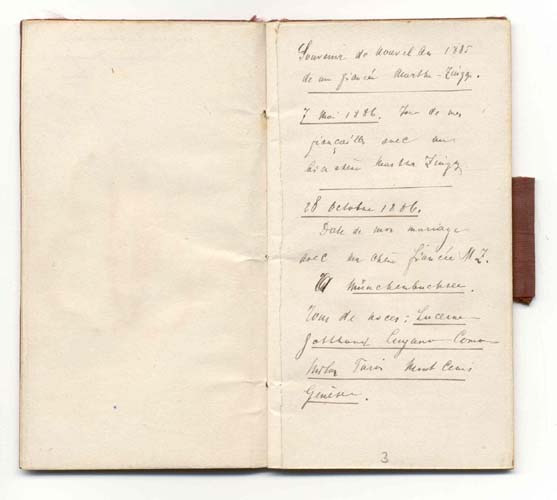 Souvenir de Nouvel An 1885
de ma fiancée Martha Zingg.
7 Mai 1886. Jour de mes
fiançailles avec ma
bien chère Martha Zingg
28 Octobre 1886.
Date de mon mariage
avec ma chère fiancée M. Z.
Münchenbuchsee.
Tour de noces: Lucerne
Gotthard Lugano Como
Milan Turin Mont Cenis
Genève.
3